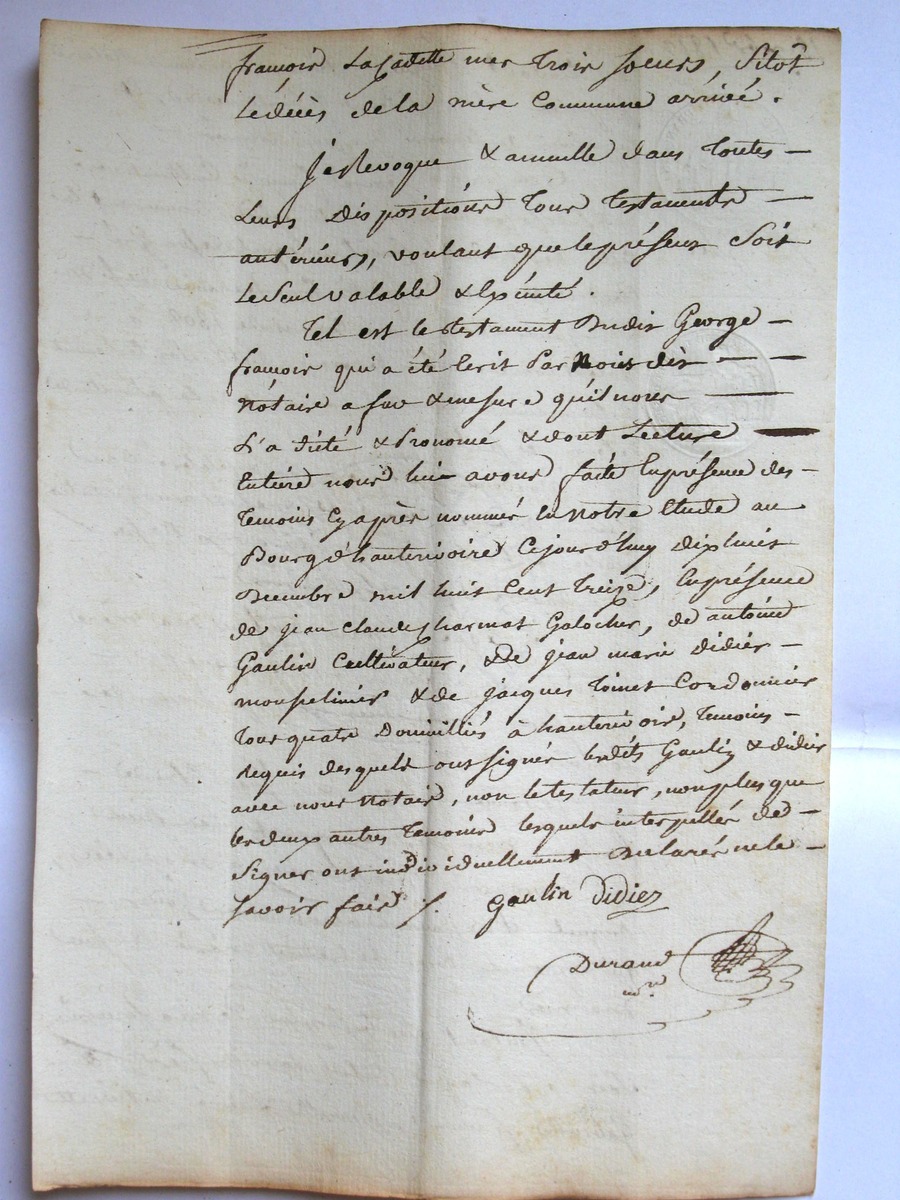 françois La Cadette mes trois soeurs, sitôt
Le décès de la mère Commune arrivé.
Je Revoque & annulle dans toutes —
Leurs Dispositions Tous Testaments —
antérieurs, voulant que le présent soit
Le Seul valable & Exécuté.
Tel est le testament Dudit George —
françois qui a été Ecrit Par Nous dit — —
Nótaire a fur & mesure qu'il nous —
L'a dicté & Prononcé & dont Lecture —
Entière nous lui avons faite En présence des —
Temoins Cy après nommés En Notre Etude au
Bourg d'hauterivoire Cejourd'huy dix huit
Décembre mil huit Cent Treize, En présence
de jean Claude Charmat Galocher, de antoine
Gaulin Cultivateur, & de jean marie didier —
& de jacques Toinet Cordonnier
Tous quatre Domiciliés à hauterivoir, Temoins —
Requis desquels ont signé lesdits Gaulin & didier
avec nous Notaire, non le testateur, non plus que
les deux autres Temoins lesquels interpellés de —
Signer ont individuellement Déclarés ne le —
savoir faire /. Gaulin Didiez
Durand
nre